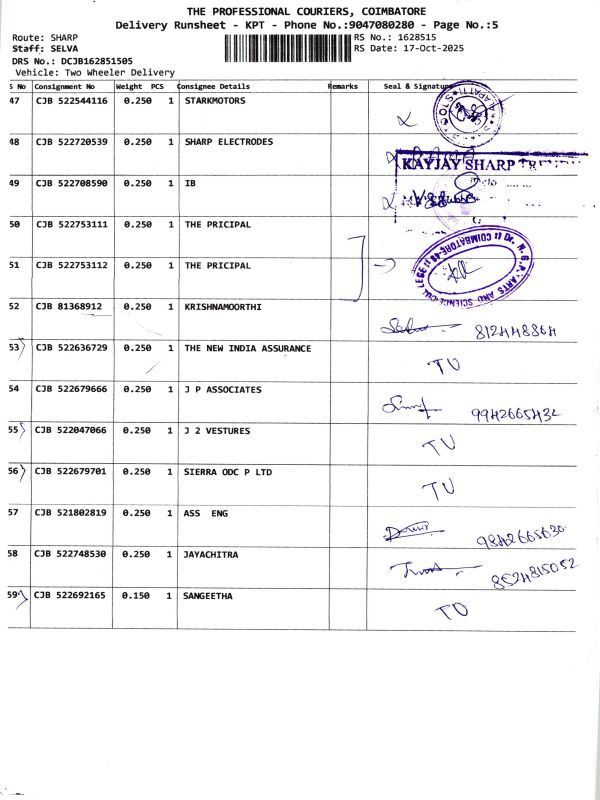 THE PROFESSIONAL COURIERS, COIMBATORE
Delivery Runsheet - KPT - Phone No.:9047080280 - Page No.:5
Route: SHARP RS No.: 1628515
Staff: SELVA RS Date: 17-Oct-2025
DRS No.: DCJB162851505
Vehicle: Two Wheeler Delivery
S No Consignment No Weight PCS Consignee Details Remarks Seal & Signature
47 CJB 522544116 0.250 1 STARKMOTORS
48 CJB 522720539 0.250 1 SHARP ELECTRODES
KAYJAY SHARP
49 CJB 522708590 0.250 1 IB
50 CJB 522753111 0.250 1 THE PRICIPAL
Dr. N.G.P. ARTS AND SCIENCE COLLEGE COIMBATORE-48
51 CJB 522753112 0.250 1 THE PRICIPAL
52 CJB 81368912 0.250 1 KRISHNAMOORTHI
53 CJB 522636729 0.250 1 THE NEW INDIA ASSURANCE TU
54 CJB 522679666 0.250 1 J P ASSOCIATES 9942665432
55 CJB 522047066 0.250 1 J 2 VESTURES TU
56 CJB 522679701 0.250 1 SIERRA ODC P LTD TU
57 CJB 521802819 0.250 1 ASS ENG 9842665630
58 CJB 522748530 0.250 1 JAYACHITRA 8524815052
59 CJB 522692165 0.150 1 SANGEETHA TU